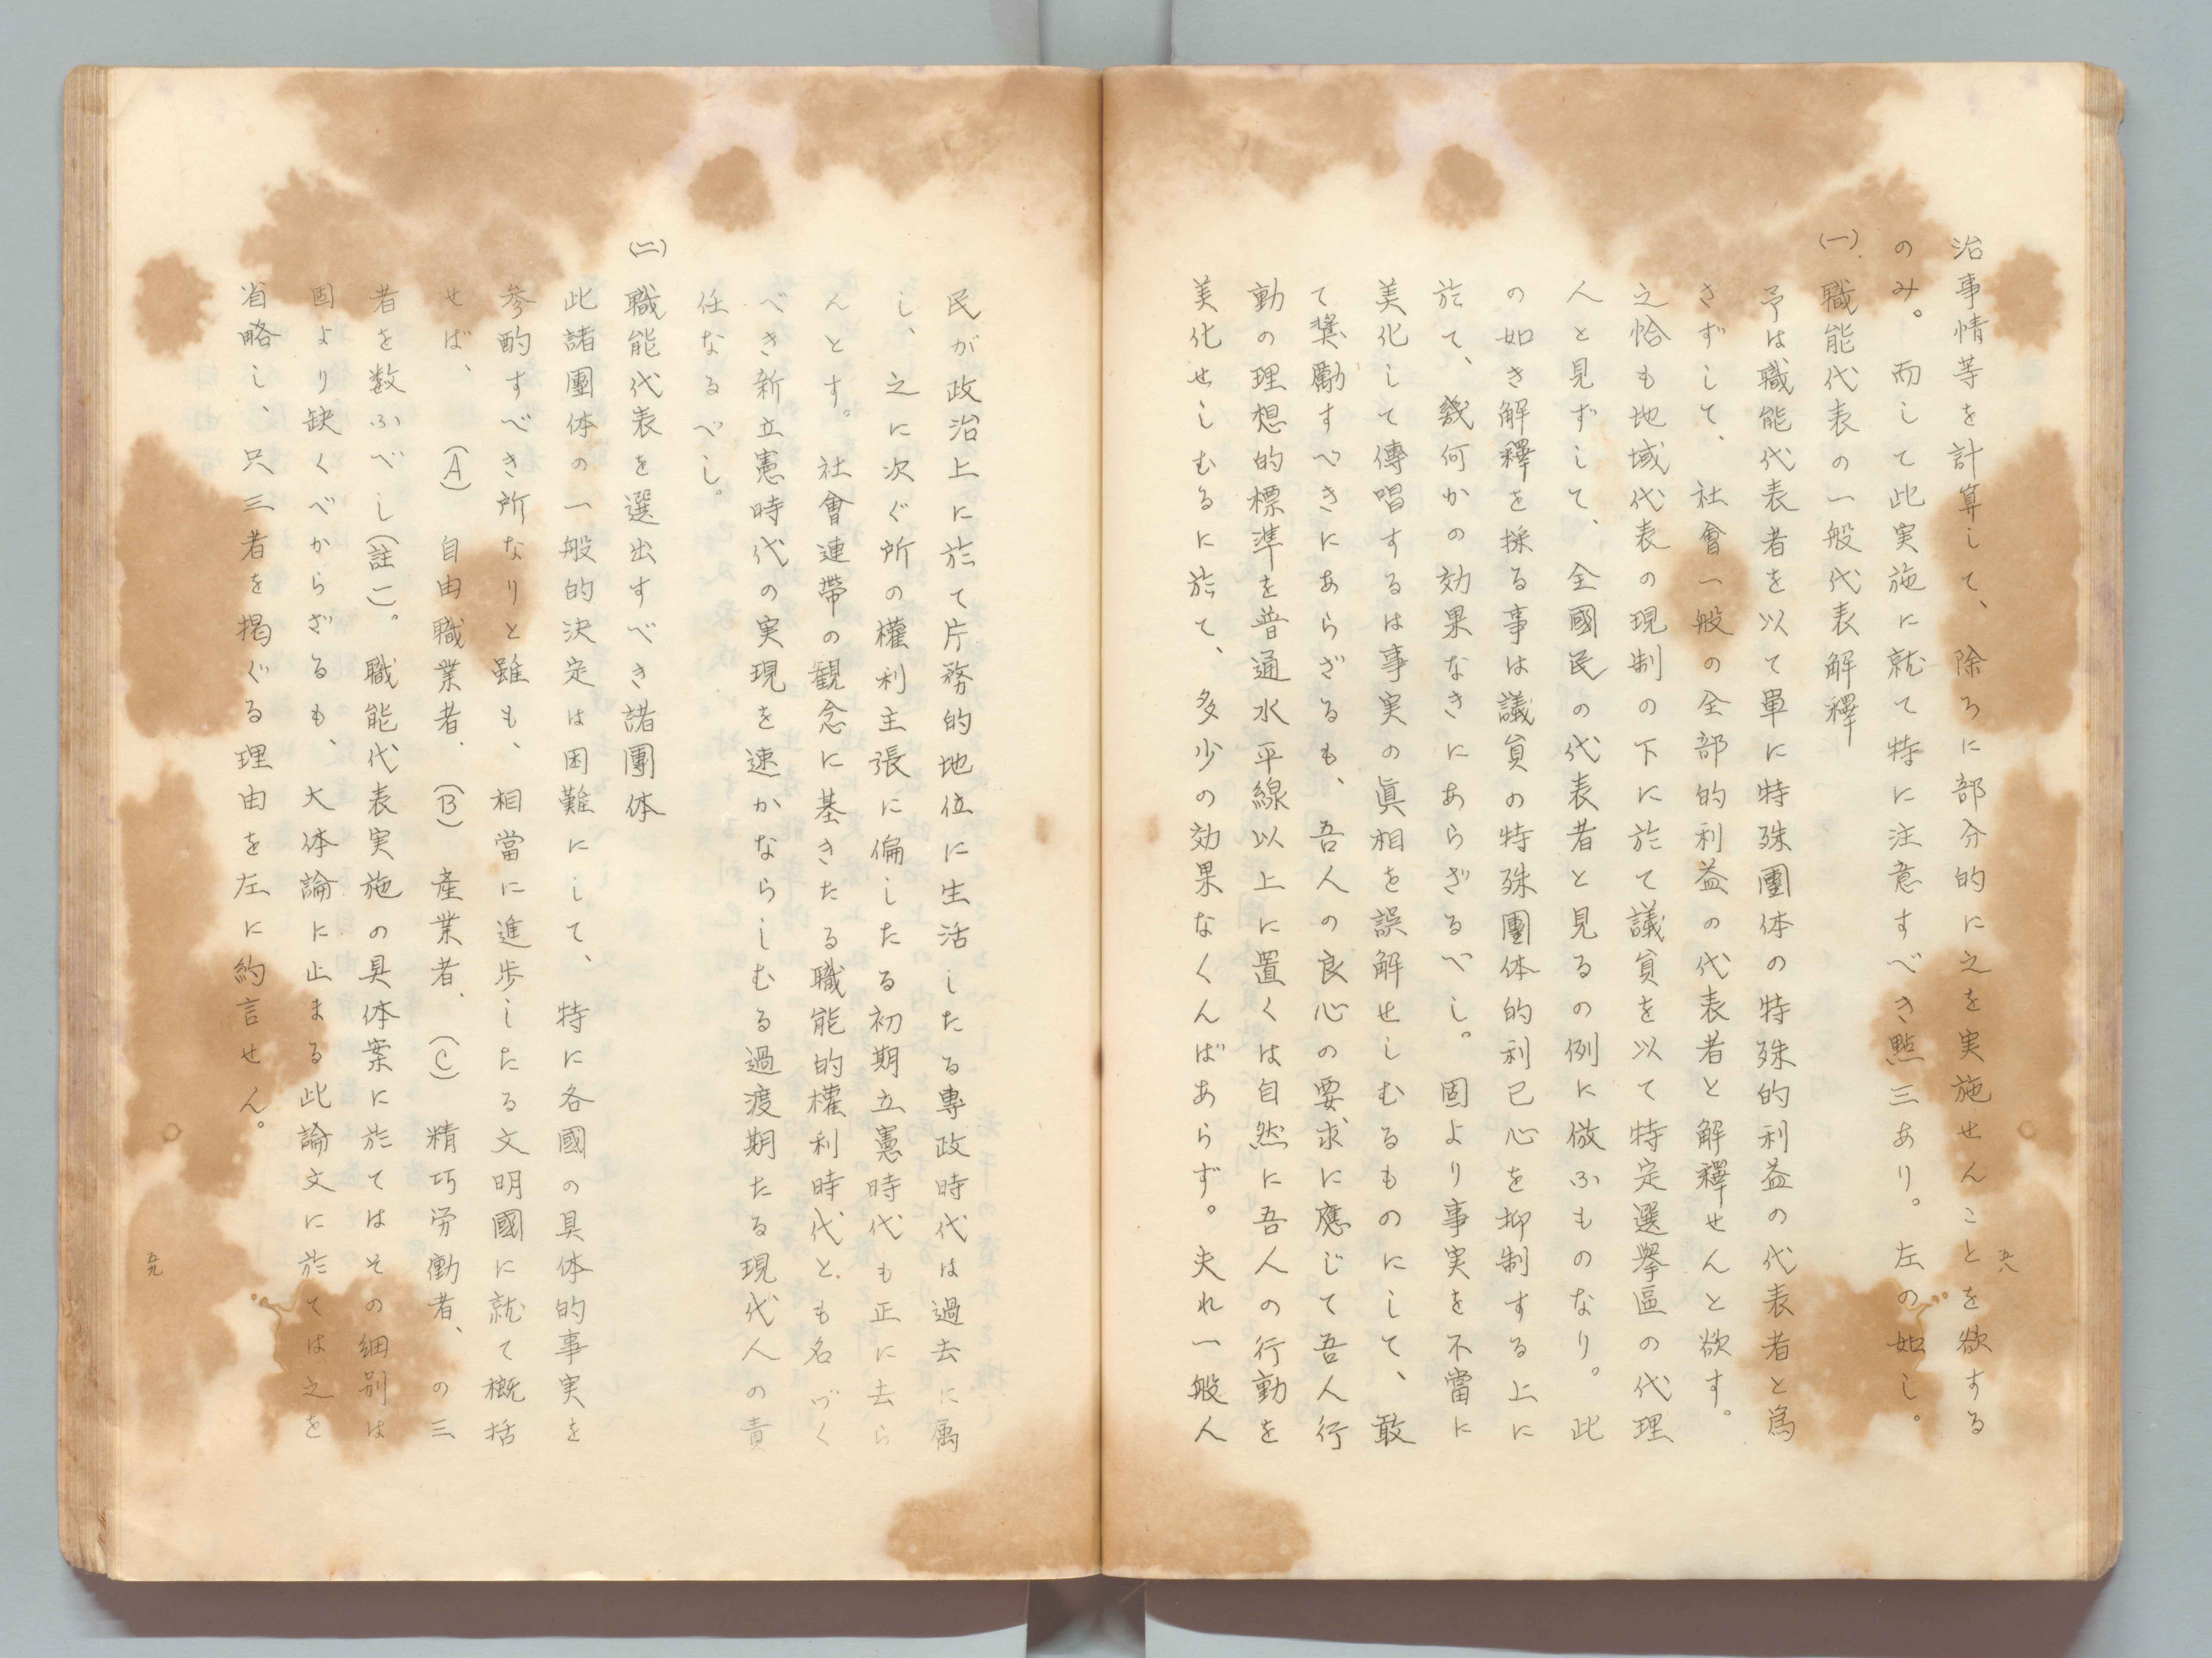 治事情等を計算して、除ろに部分的に之を実施せんことを欲する
のみ。而して此実施に就て特に注意すべき點三あり。左の如し。
(一) 職能代表の一般代表解釋
予は職能代表者を以て單に特殊團体の特殊的利益の代表者と為
さずして、社會一般の全部的利益の代表者と解釋せんと欲す。
之恰も地域代表の現制の下に於て議員を以て特定選擧區の代理
人と見ずして、全國民の代表者と見るの例に倣ふものなり。此
の如き解釋を採る事は議員の特殊團体的利己心を抑制する上に
於て、幾何かの効果なきにあらざるべし。固より事実を不當に
美化して傳唱するは事実の眞相を誤解せしむるものにして、敢
て奨勵すべきにあらざるも、吾人の良心の要求に應じて吾人行
動の理想的標準を普通水平線以上に置くは自然に吾人の行動を
美化せしむるに於て、多少の効果なくんばあらず。夫れ一般人
五八
民が政治上に於て片務的地位に生活したる專政時代は過去に属
し、之に次ぐ所の權利主張に偏したる初期立憲時代も正に去ら
んとす。社會連帶の観念に基きたる職能的權利時代とも名づく
べき新立憲時代の実現を速かならしむる過渡期たる現代人の責
任なるべし。
(二) 職能代表を選出すべき諸團体
此諸團体の一般的決定は困難にして、特に各國の具体的事実を
参酌すべき所なりと雖も、相當に進歩したる文明國に就て概括
せば、(A) 自由職業者. (B) 產業者. (C) 精巧労働者、の三
者を数ふべし(註一)。職能代表実施の具体案に於てはその細別は
固より缺くべからざるも、大体論に止まる此論文に於ては之を
省略し、只三者を掲ぐる理由を左に約言せん。
五九